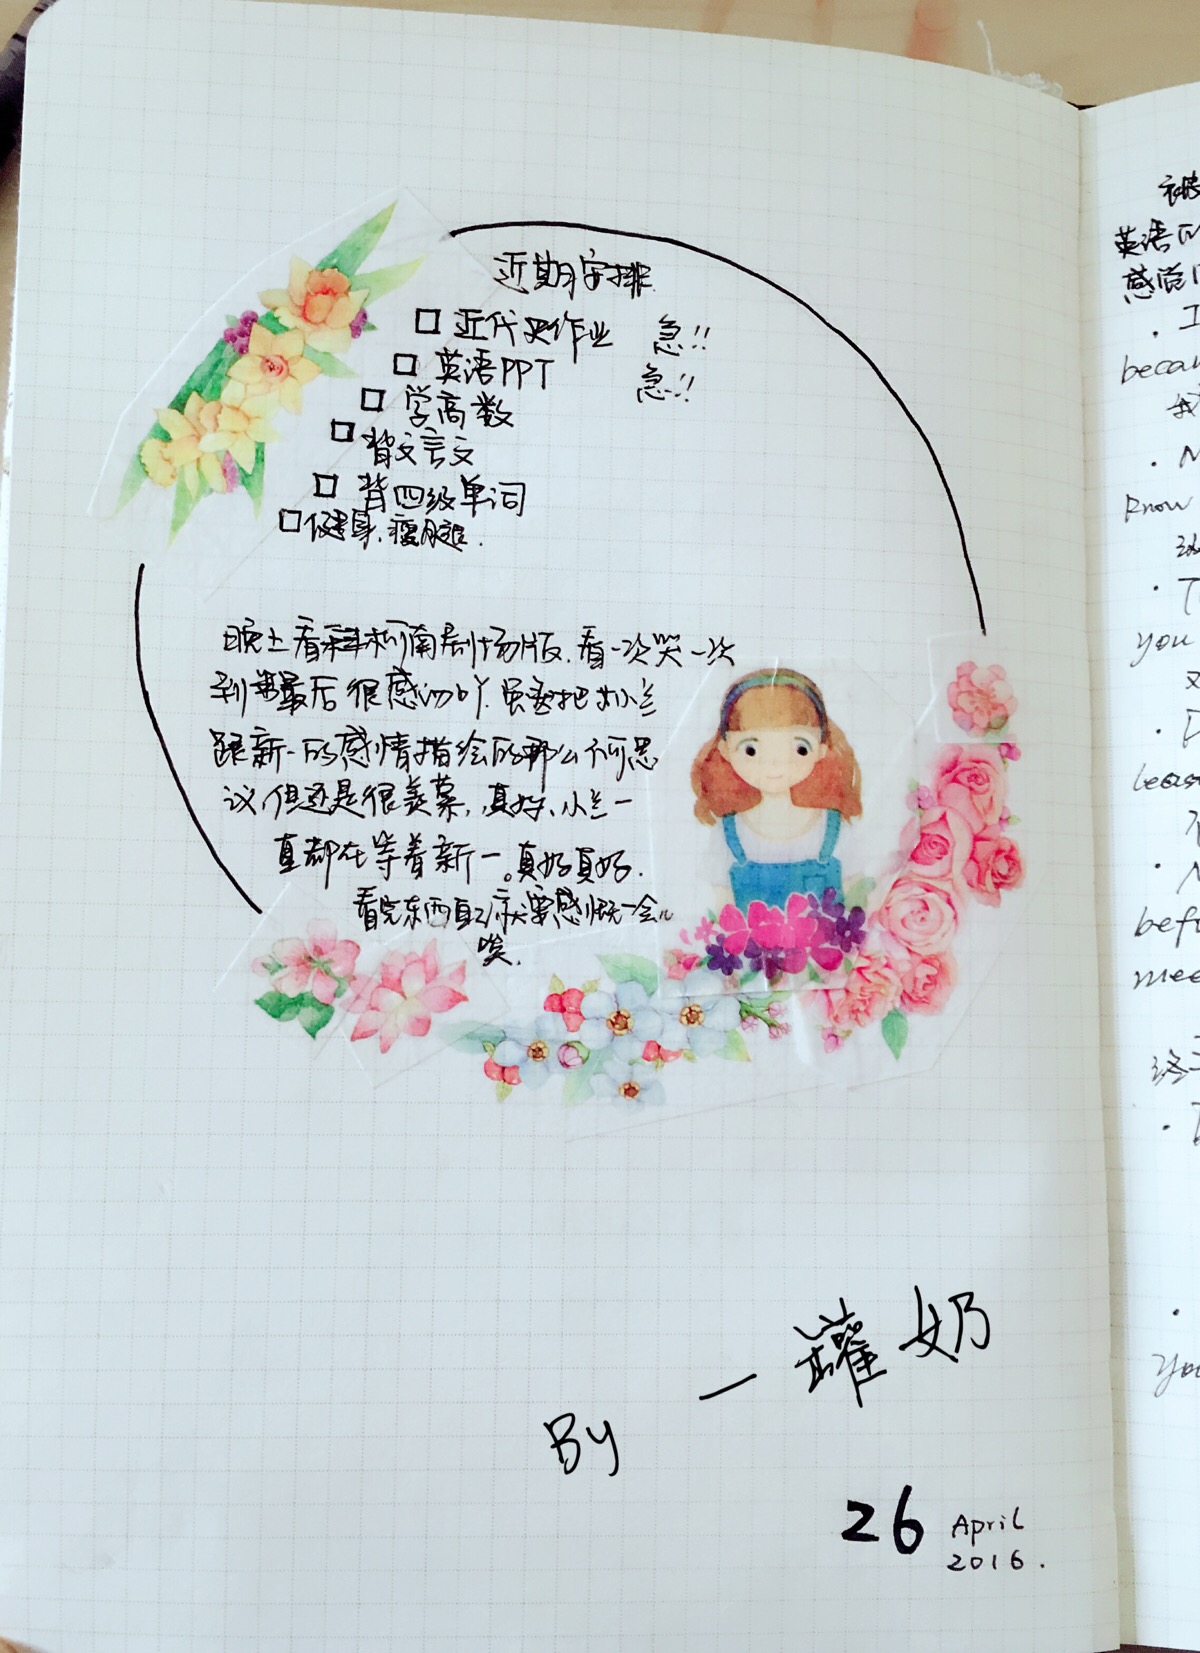 近期安排
□ 近代史作业 急!!
□ 英语PPT 急!!
□ 学高数
□ 背文言文
□ 背四级单词
□ 健身、瘦腿.
晚上看科柯南剧场版.看一次哭一次
到最后很感动吖.虽然把小兰
跟新一的感情描绘的那么不可思
议但还是很羡慕,真好、小兰一
直都在等着新一。真好真好.
看完东西自己就要感慨一会儿
唉.
By 一罐奶
26 April
2016.
英语
感觉
· I
becau
· N
know
· T
you
·
leas
· N
befo
mee
·
you